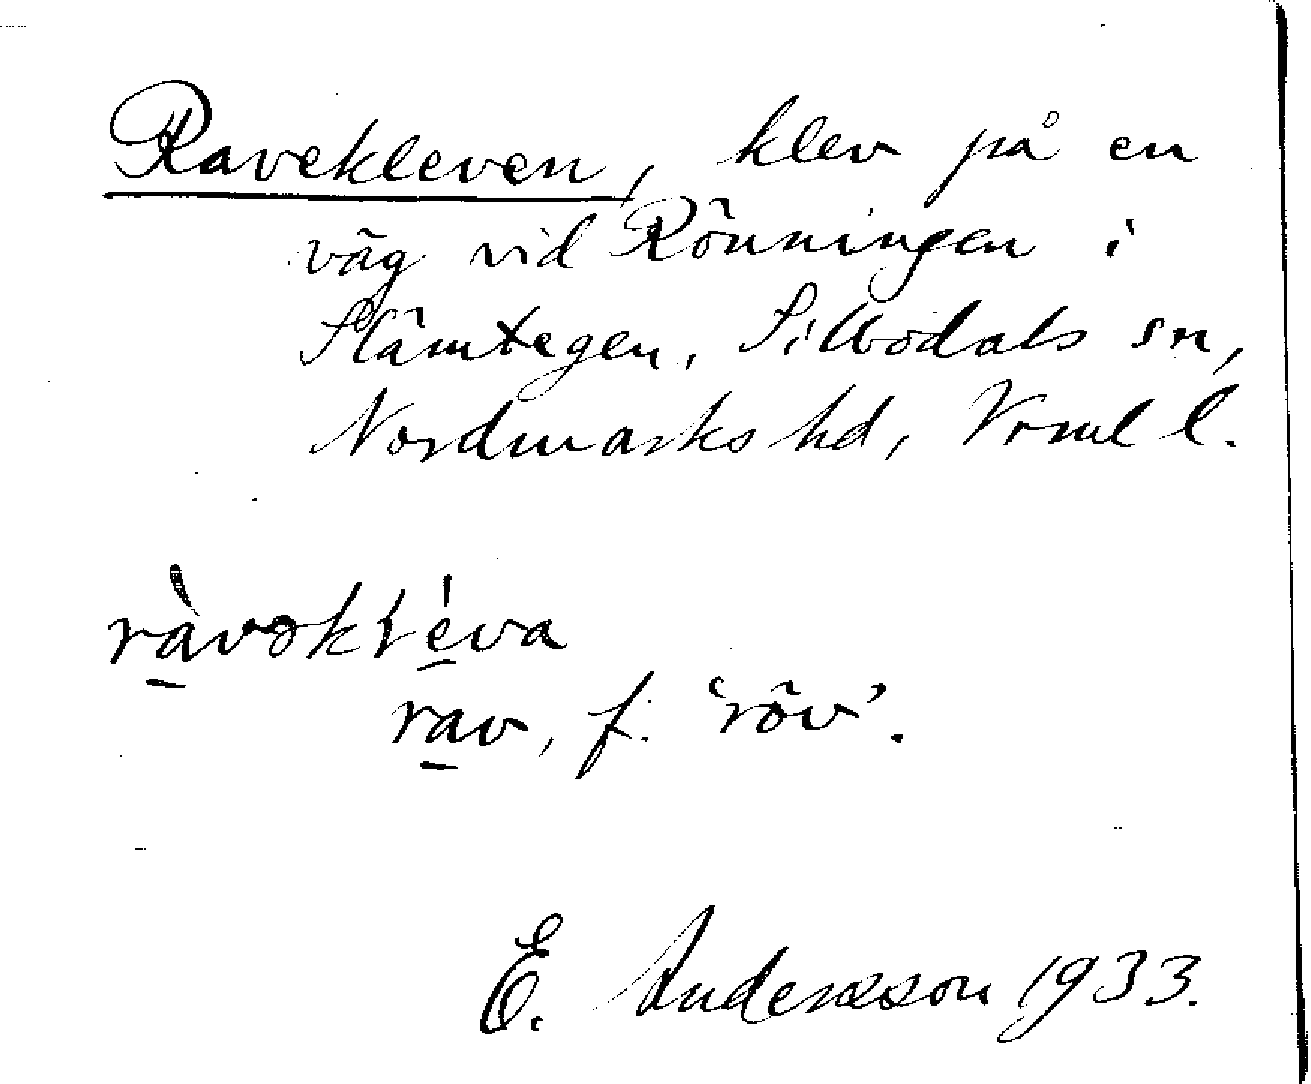 Ravekleven, klev på en
väg vid Rönningen i
Slämtegen, Sillbodals sn,
Nordmarks hd, Vrml l.
ràvəkɫéva
rav, f. 'röv'.
E. Andersson 1933.